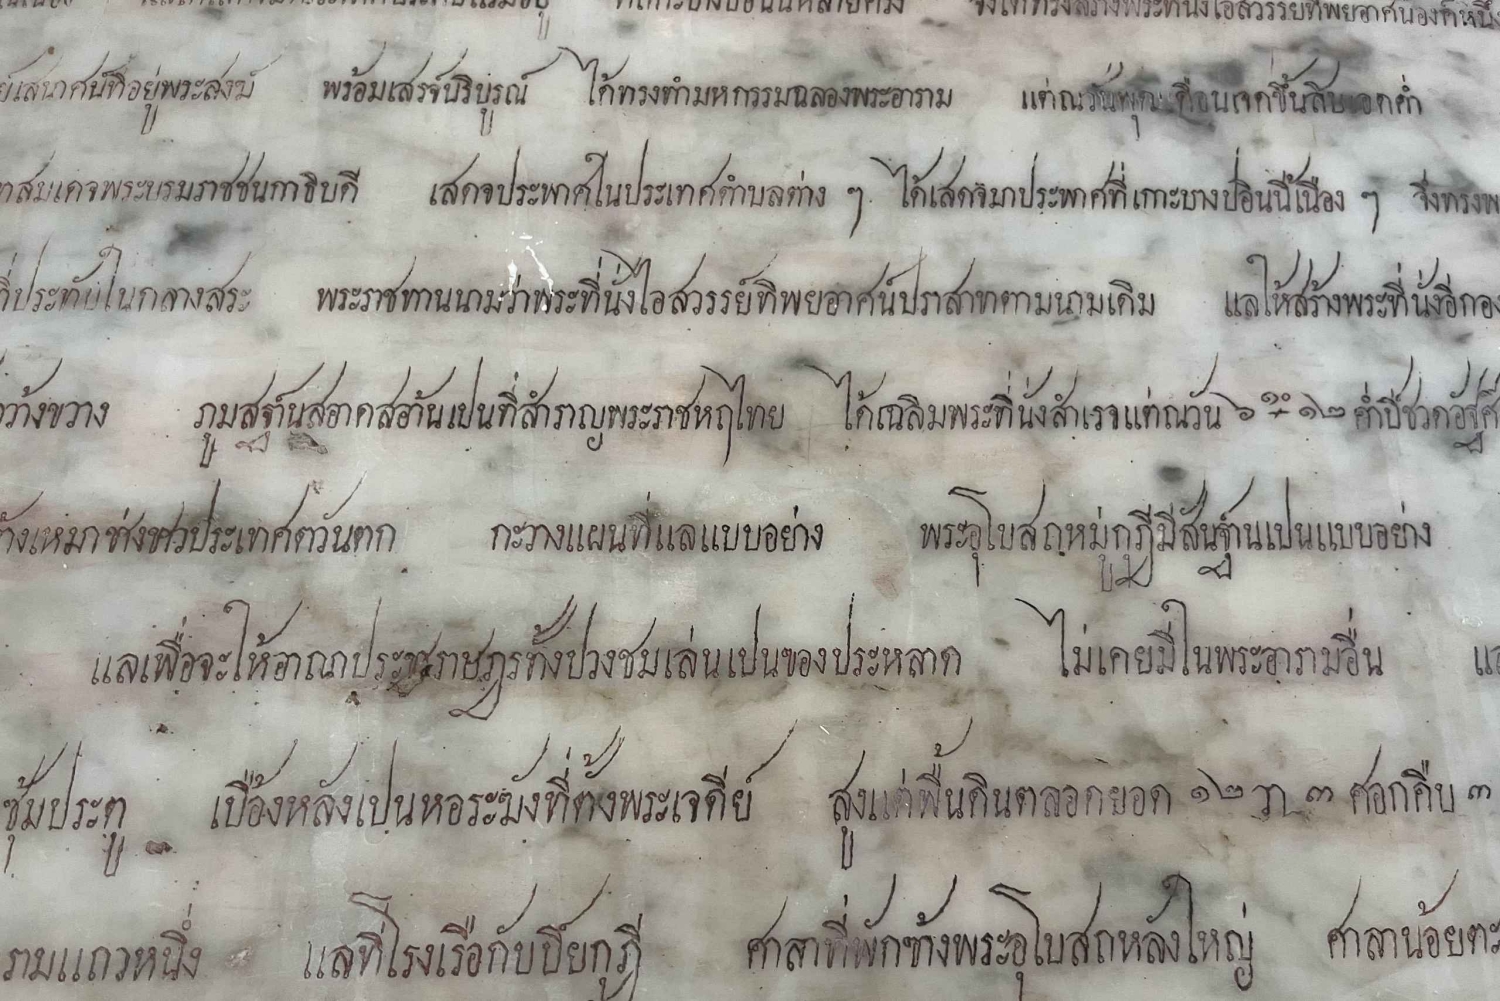 พระที่นั่งไอสวรรยทิพยอาศนองค์หนึ่ง
เสนาศน์ที่อยู่พระสงฆ์ พร้อมเสรจ์บริบูรณ์ ได้ทรงทำมหกรรมฉลองพระอาราม แต่ณวันพุฒเดือนเจดขึ้นสิบเอดค่ำ
สมเดจพระบรมราชชนกาธิบดี เสดจประพาศในประเทศตำบลต่าง ๆ ได้เสดจมาประพาศที่เกาะบางปอินนี้เนือง ๆ จึงทรงพ
ที่ประทับในกลางสระ พระราชทานนามว่าพระที่นั่งไอสวรรย์ทิพยอาศน์ปราสาทตามนามเดิม แลให้สร้างพระที่นั่งอีกอง
กว้างขวาง ภูมสฐานสอาดสอ้านเปนที่สำราญพระราชหฤไทย ได้เฉลิมพระที่นั่งสำเรจแต่ณวัน ๖ ๑๒ ค่ำปีชวดอัฐศ
จ้างเหมาช่างชาวประเทศตวันตก กะวางแผนที่แลแบบอย่าง พระอุโบสถหมู่กุฎีมีสันฐานเปนแบบอย่าง
แลเพื่อจะให้อาณาประชาราษฎรทั้งปวงชมเล่นเปนของประหลาด ไม่เคยมีในพระอารามอื่น แล
ซุ้มประตู เบื้องหลังเปนหอระฆังที่ตั้งพระเจดีย์ สูงแต่พื้นดินตลอดยอด ๑๒ วา ๓ ศอกคืบ ๓
รามแถวหนึ่ง แลที่โรงเรือกับปิยกุฎี ศาลาที่พักข้างพระอุโบสถหลังใหญ่ ศาลาน้อยตะ